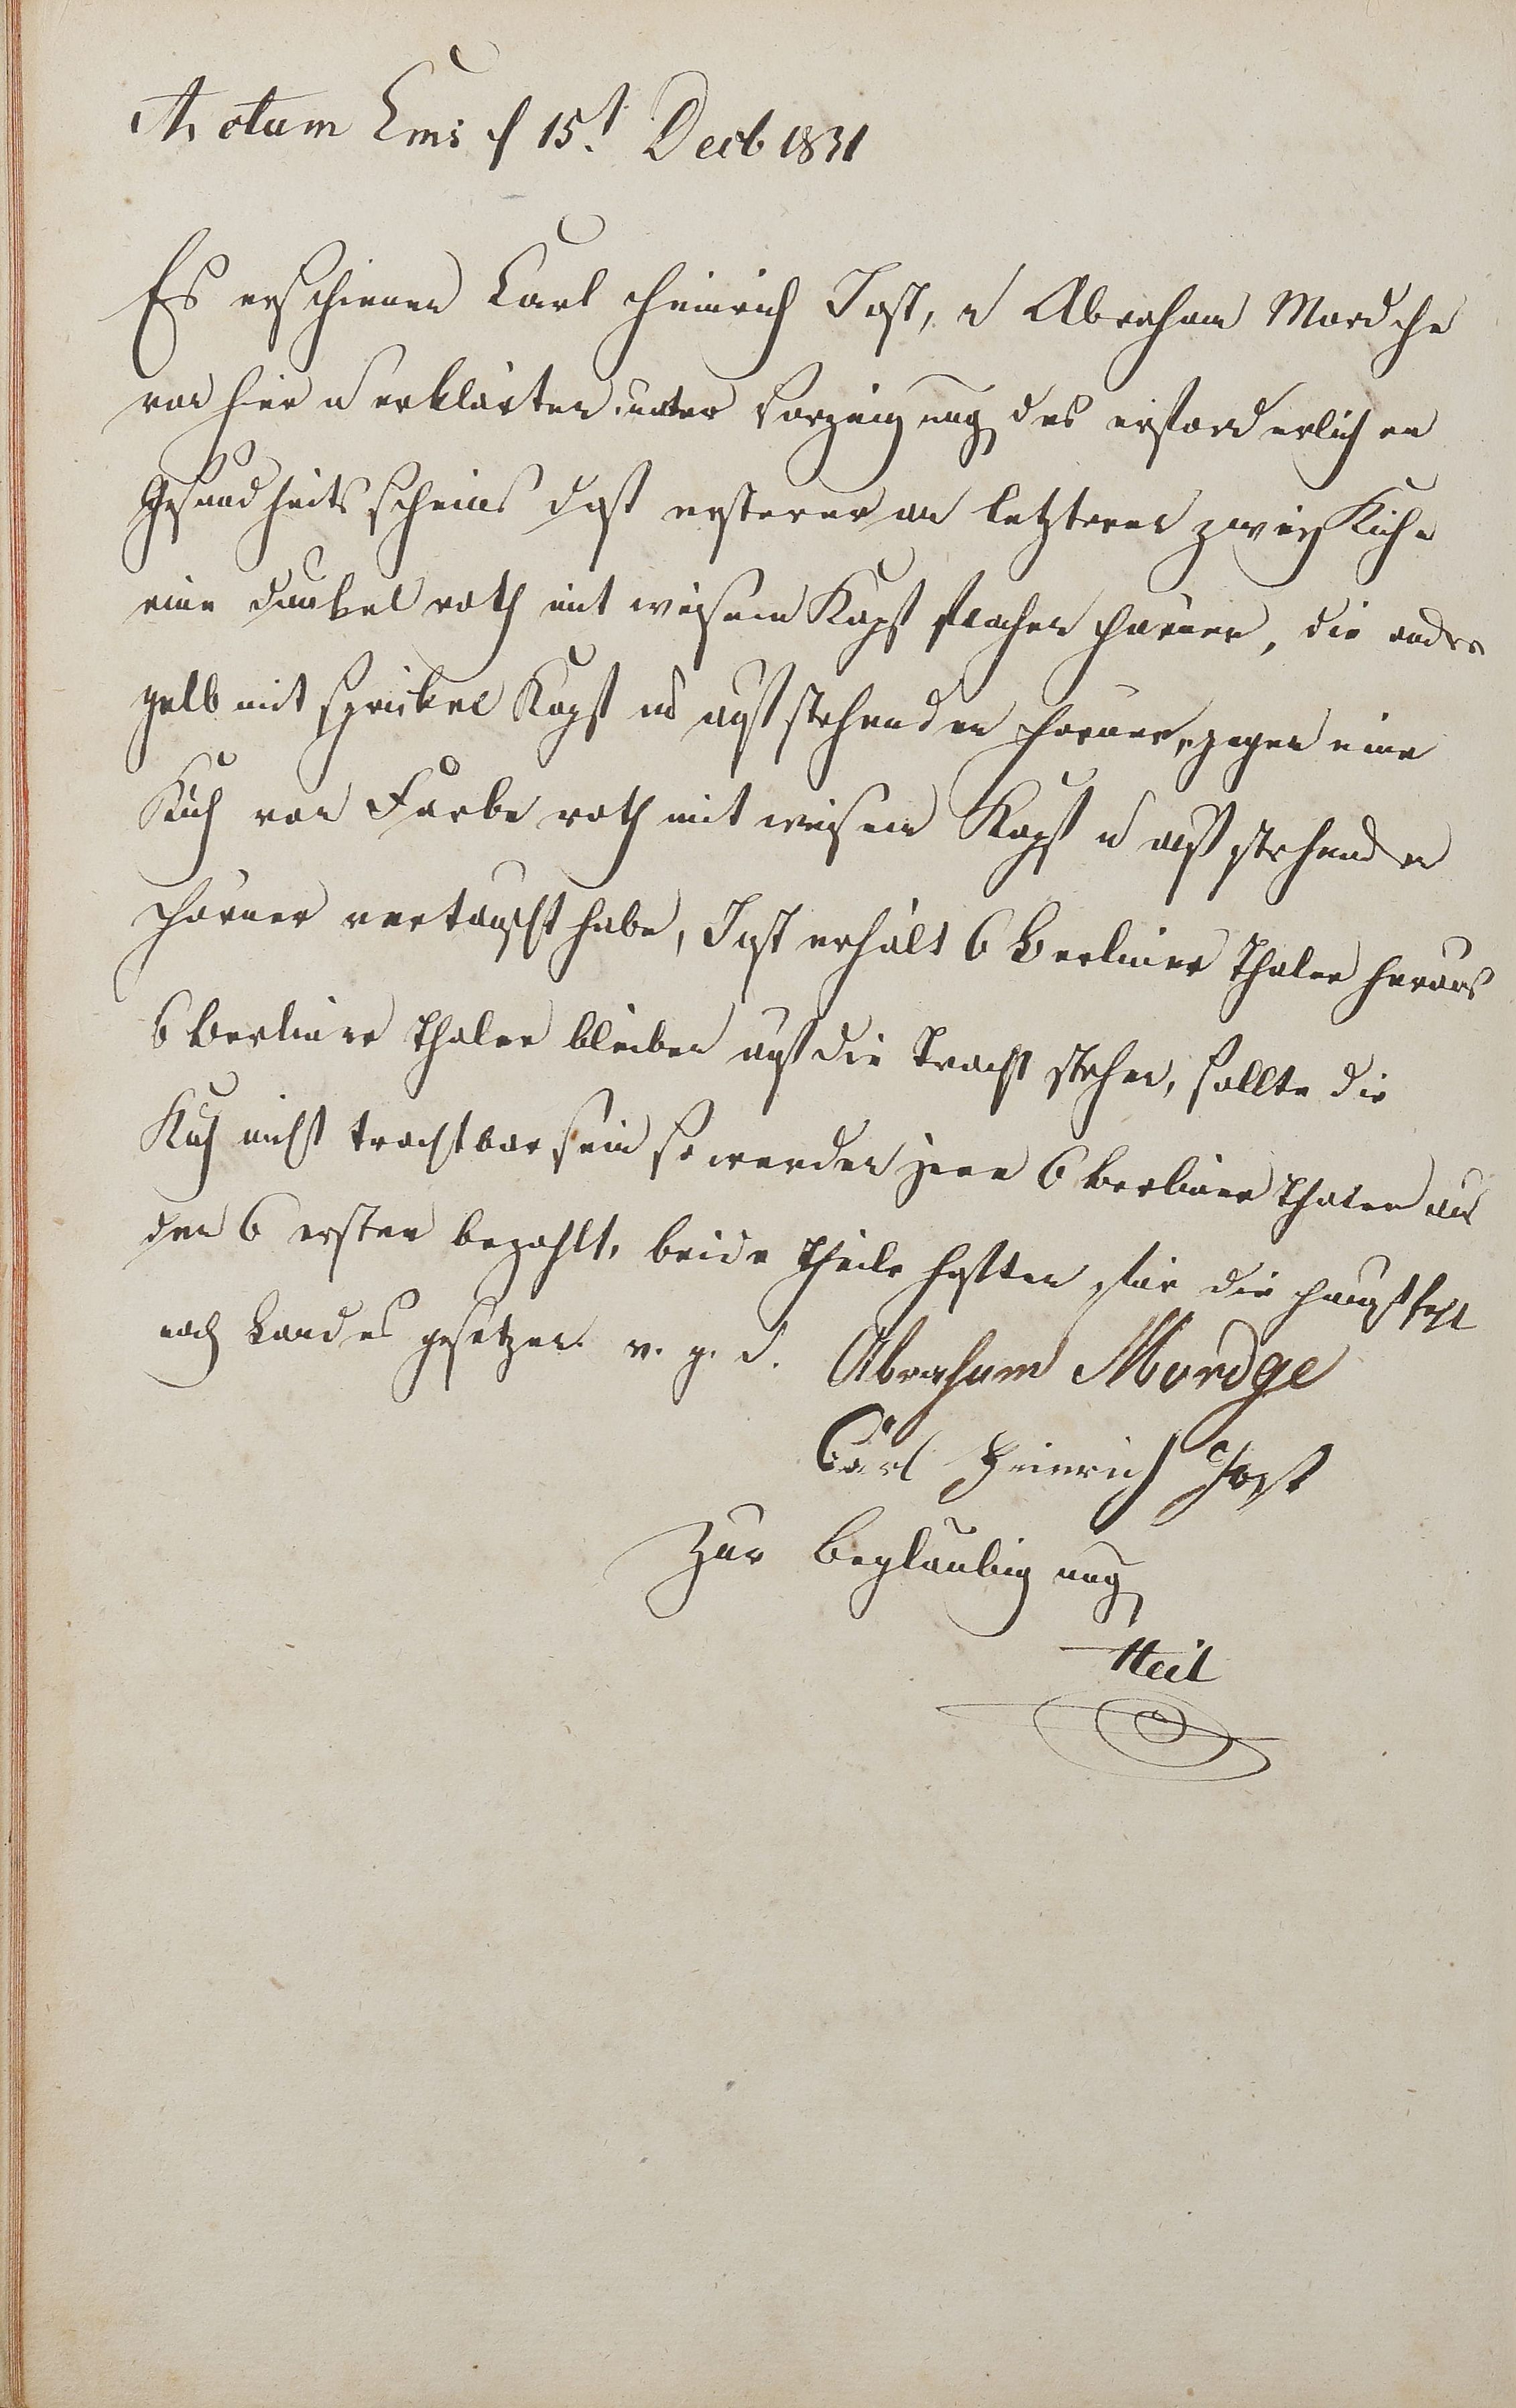 Actum Ems d 15t Decb 1831
Es erschienen Carl Heinrich Jost, u Abraham Mordche
von hier u erklärten unter Vorzeigung des erforderlichen
Gesundheitsscheins daß ersterer an letzteren zwei Kühe
eine dunkel roth mit weisem Kopf flachen Hörner, die andre
gelb mit Kopf u aufstehenden Hörner, gegen eine
Kuh von Farbe roth mit weisem Kopf u aufstehenden
Hörner vertauscht habe, Jost erhält 6 Berliner Thaler heraus
6 Berliner Thaler bleiben auf die Tracht stehen, sollte die
Kuh nicht trachtbar sein so werden jene 6 Berliner Thaler an
den 6 ersten bezahlt, beide Theile haften für die
nach Landes gesetzen v. g. d. Abraham Mordge
Carl Heinrich Jost
Zur Beglaubigung
Heil